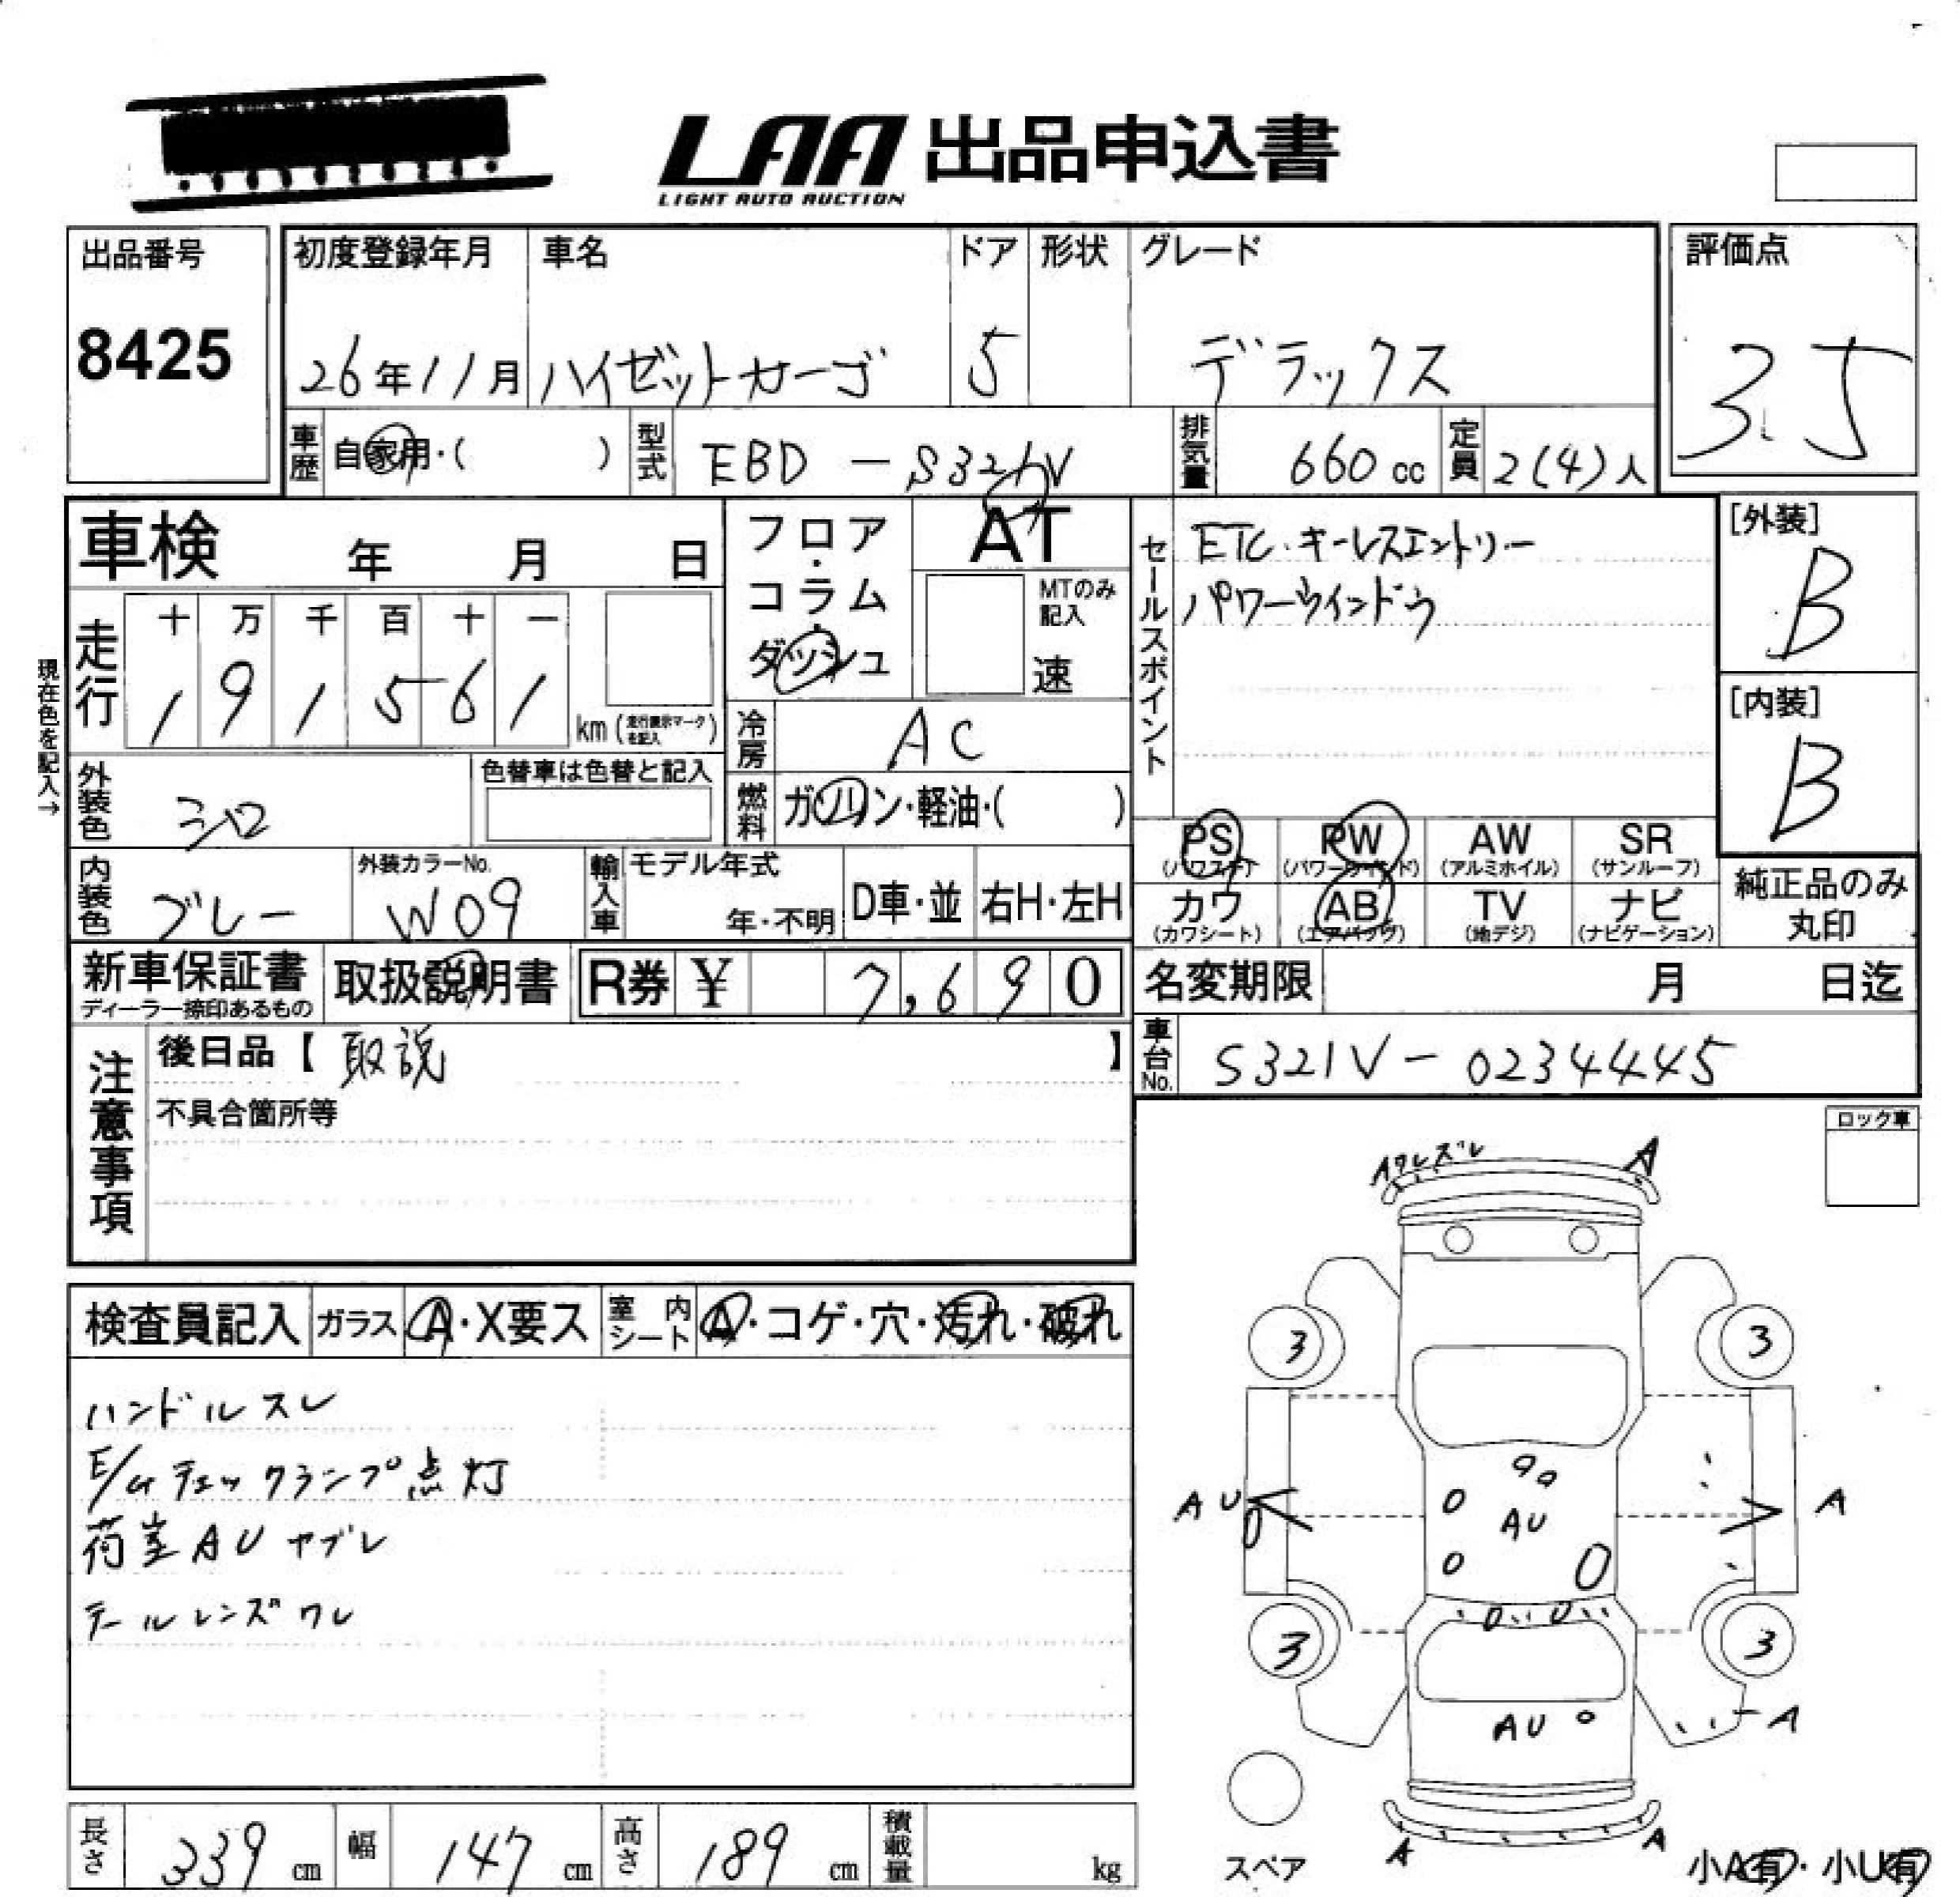 LAA 出品申込書
LIGHT AUTO AUCTION
出品番号
8425
初度登録年月 車名 ドア 形状 グレード
26年11月 ハイゼットカーゴ 5 デラックス
評価点
3.5
車歴 自家用・( ) 型式 EBD-S321V 排気量 660cc 定員 2(4)人
車検 年 月 日
フロア・コラム・ダッシュ
AT
MTのみ記入
速
セールスポイント
ETC・キーレスエントリー
パワーウインドウ
[外装]
B
[内装]
B
現在色を記入→
走行 十 万 千 百 十 一
1 9 1 5 6 1 km (走行表示マークを記入)
冷房 AC
外装色 シロ 色替車は色替と記入
燃料 ガソリン・軽油・( )
PS (パワステ) PW (パワーウインド) AW (アルミホイル) SR (サンルーフ)
カワ (カワシート) AB (エアバッグ) TV (地デジ) ナビ (ナビゲーション)
純正品のみ丸印
内装色 グレー 外装カラーNo. W09 輸入車 モデル年式 年・不明 D車・並 右H・左H
新車保証書 ディーラー捺印あるもの 取扱説明書 R券 ¥ 7,690
名変期限 月 日迄
車台No. S321V-0234445
注意事項
後日品【 取説 】
不具合箇所等
ロック車
検査員記入 ガラス A・X要ス 室内シート A・コゲ・穴・汚れ・破れ
ハンドルスレ
E/Gチェックランプ点灯
荷室AUヤブレ
テールレンズワレ
Aワレズレ A
3 3
AU AU A
3 3
AU A
A A
スペア
小A有・小U有
長さ 339cm 幅 147cm 高さ 189cm 積載量 kg